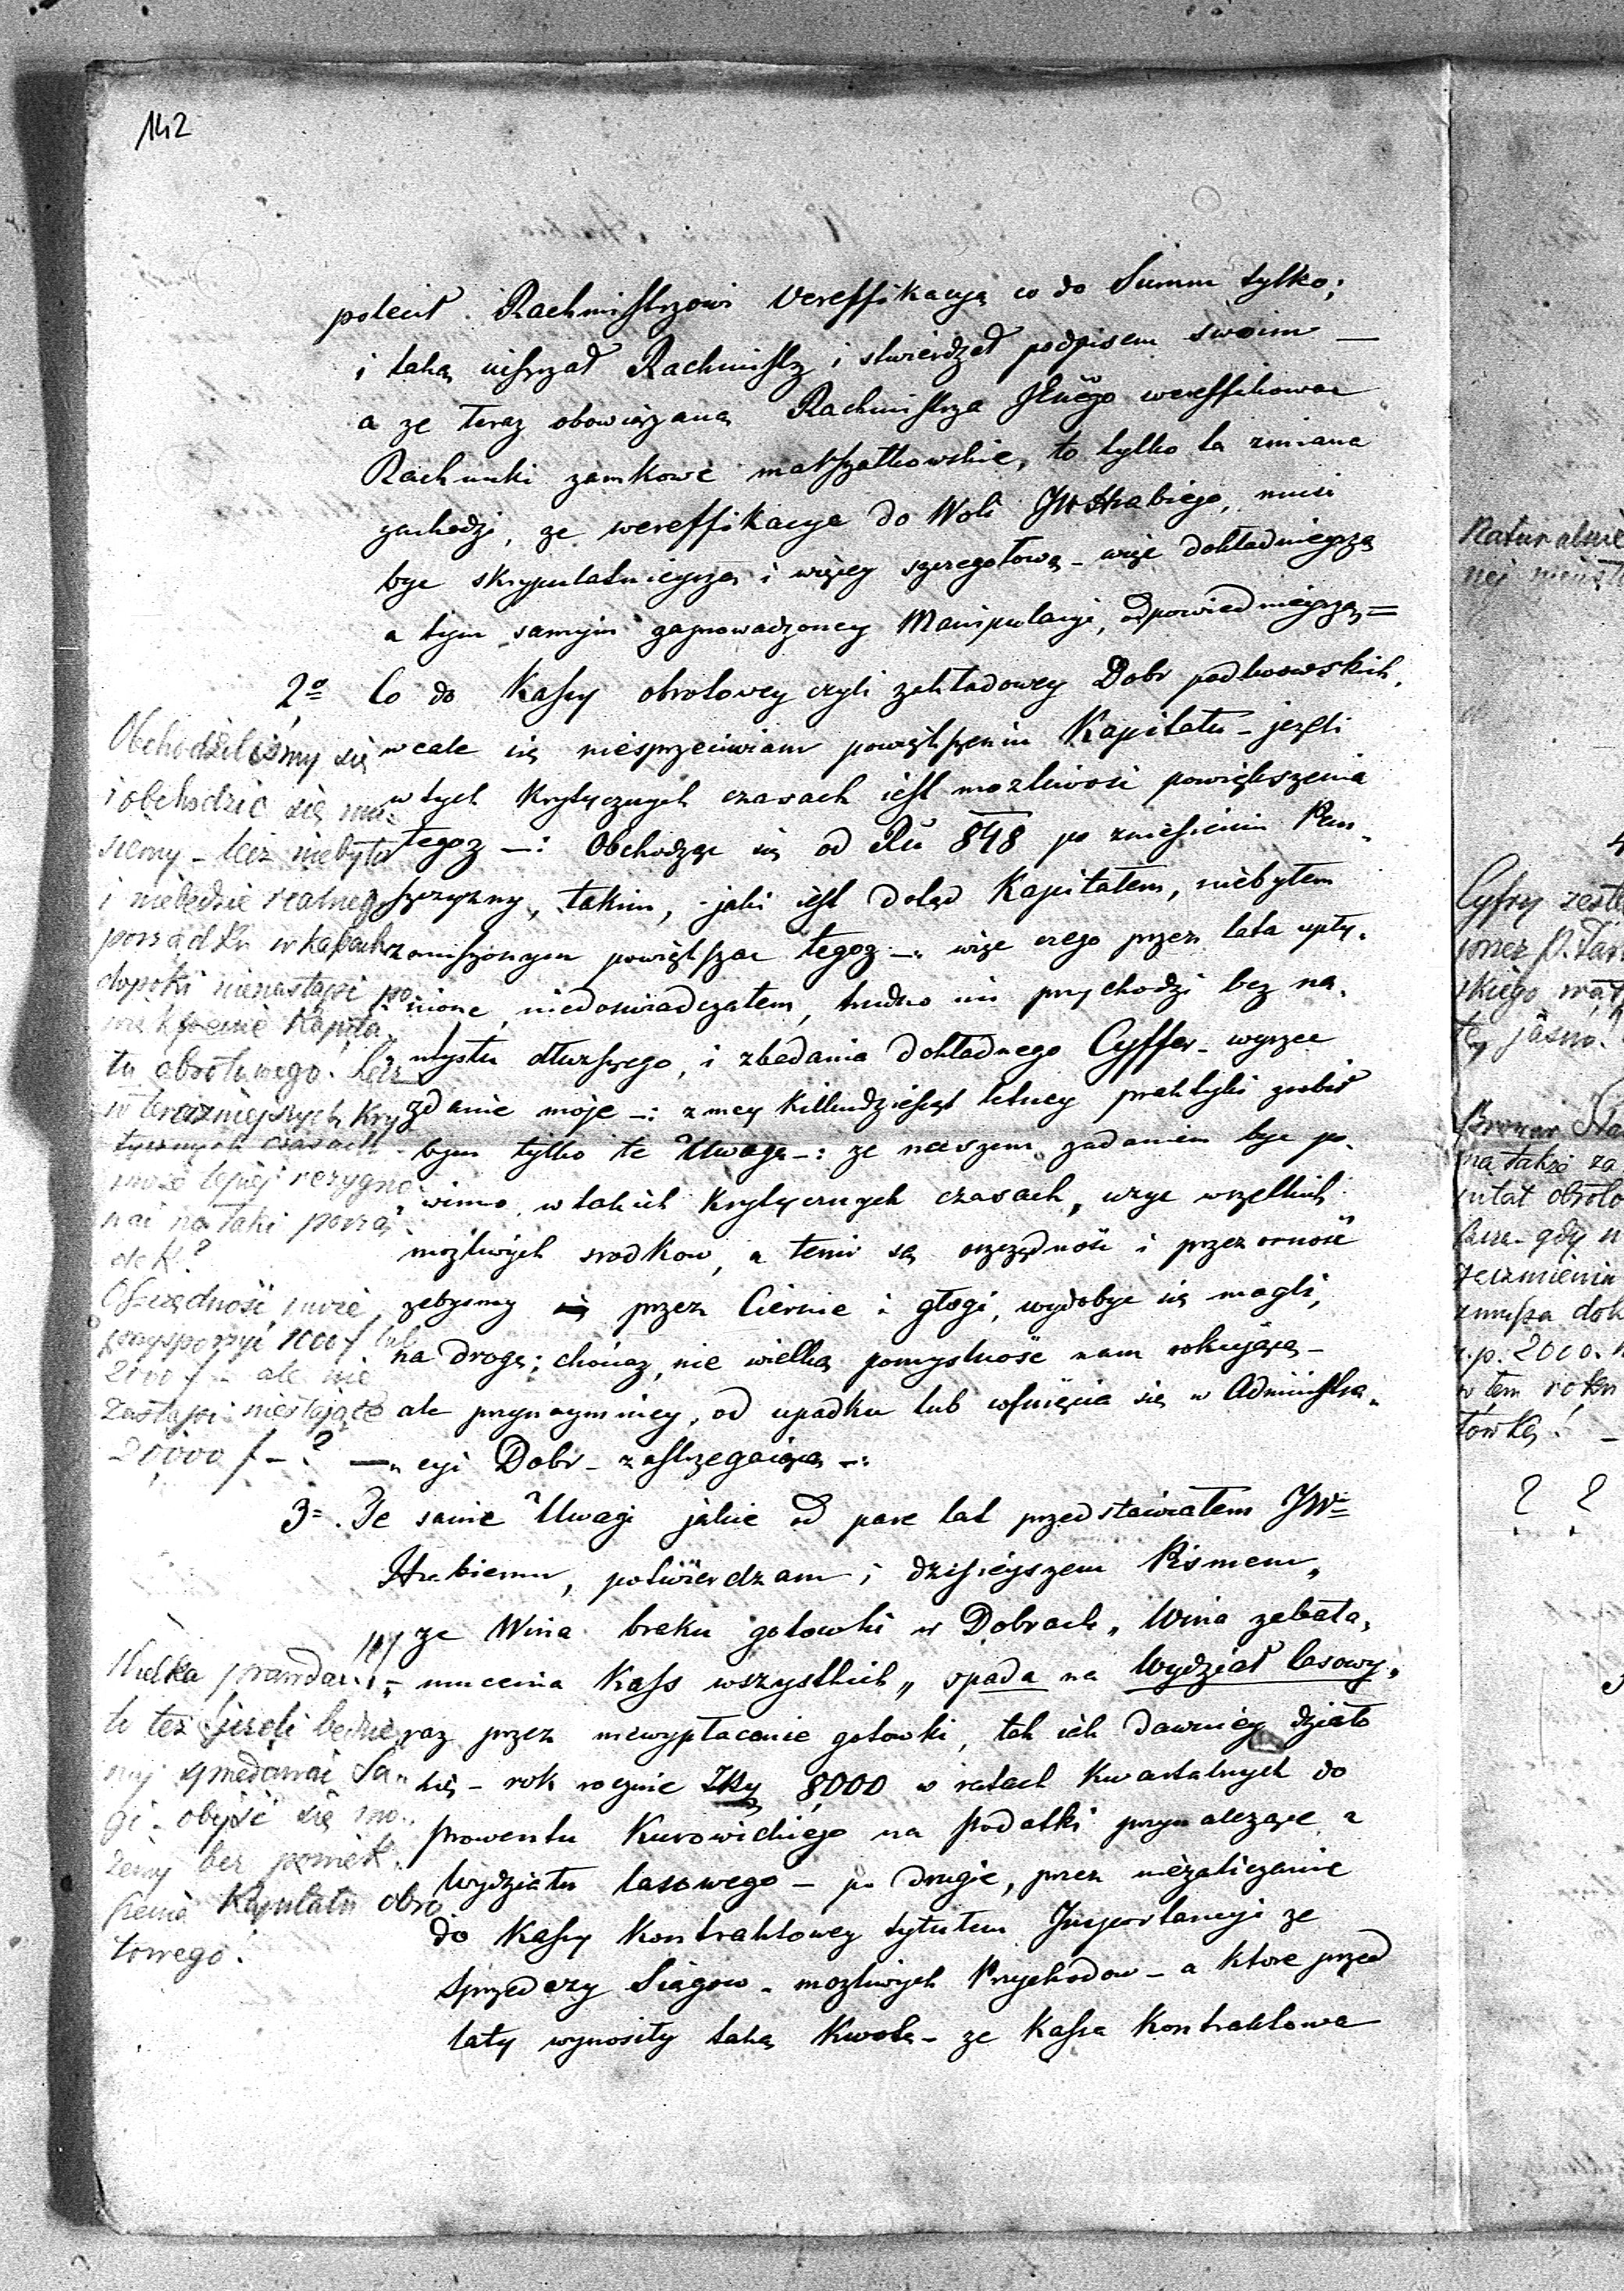 142
polecił Rachmistrzowi Vereffikacyą co do Summ tylko;
i taką uiszczał Rachmistrz i stwierdzał podpisem swoim —
a ze teraz obowiązaną Rachmistrza wereffikowac
Rachunki zamkowe marszałkowskie, to tylko ta zmiana
zachodzi, ze wereffikacya do Woli JW Hrabiego, musi
byc skrypulatnieyszą i więcey szczegołową – więc dokładnieyszą
a tym samym zaprowadzoney Manipulacyi, odpowiednieyszą =
2o Co do Kassy obrotowey czyli zakładowey Dobr padhorowskich,
wcale się niesprzeciwiam powiększeniu Kapitału – jezeli
w tych Krytycznych czasach jest mozliwość powiększenia
tegoz –: Obchodząc się od Ru 848 po zniesieniu Pan„
szczyzny, takim, jaki jest dotąd Kapitałem, niebyłem
zmuszonym powiększac tegoz –: więc czego przez lata upły„
nione, niedoswiadczałem, trudno mi przychodzi bez na„
mysłu dłuzszego, i zbadania dokładnego Cyffer – wyrzec
zdanie moje –: z mey Killkudziesiąt letney praktyki zrobił
bym tylko te Uwagę –: ze naszem zadaniem byc po„
winno, w takich Krytycznych czasach, uzyc wszelkich
mozliwych srodkow, a temi są oszczędność i przezorność
zebysmy przez Ciernie i głogi, wydobyc się mogli,
na drogę; chociaz, nie wielką pomyslność nam rokującą –
ale przynaymniey, od upadku lub cofnięcia się w Administra„
cyi Dobr – zastrzegaiącą –:
3= Te same Uwagi jakie od pare lat przedstawiałem JW=
Hrabiemu, potwierdzam i dzisieyszem Pismem„
ze Wina braku gotowki w Dobrach„ Wina zabała„
mucenia Kass wszystkich„ spada na Wydział lasowy„
raz przez niewypłacanie gotowki, tak jak dawniey działo
się – rok rocznie 8000 w ratach Kwartalnych do
prowentu Kurowickiego na podatki przynalezące z
Wydziału lasowego – po drugie, przez niezaliczanie
do Kassy Kontraktowey tytułem Importancyi ze
sprzedazy Siągow – mozliwych Przychodow – a ktore przed
laty wynosiły taką Kwotę – ze Kassa Kontraktowa
Obchodziliśmy się
i obchodzic się mu„
siemy – lecz niebyło
i niebędzie realnego
porządku w kassach
dopoki nienastąpi po„
większenie Kapita„
łu obrotowego. lecz
w teraznieyszych Kry„
tycznych czasach –
może lepiej rezygno„
wać na taki porzą„
dek?
Oszczędność może
przysporzyć 1000 f lub
2000 f – ale nie
zastąpi niestające
20000 f – ?
Wielka prawda!
to tez jezeli będzie
sprzedawać Są„
gi – obejść się mo„
żemy bez powięk„
szenia Kapitału obro
towego!
Naturalnie
Cyfry
przez P.
skiego
tey jasno!
Browar
na także za
pitał obroto
gdy
zmusza
n.p. 2000.
w tem roku
towkę! –
? ?